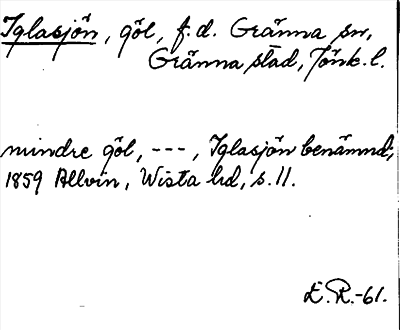 Iglasjön, göl, f.d. Gränna sn,
Gränna stad, Jönk. l.
mindre göl, ---, Iglasjön benämnd,
1859 Allvin, Wista hd, s. 11.
E. R. -61.